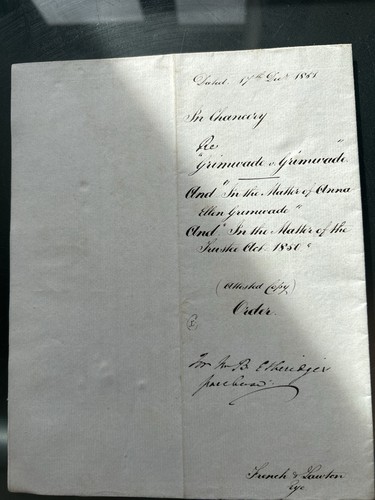 Dated 17th Decr 1861
In Chancery
Re
"Grimwade v. Grimwade"
And "In the Matter of Anna
Ellen Grimwade"
And "In the Matter of the
Trustee Act 1850"
(Attested Copy)
Order
For Mr B. Etheridge's
purchase
French & Lawton
Eye